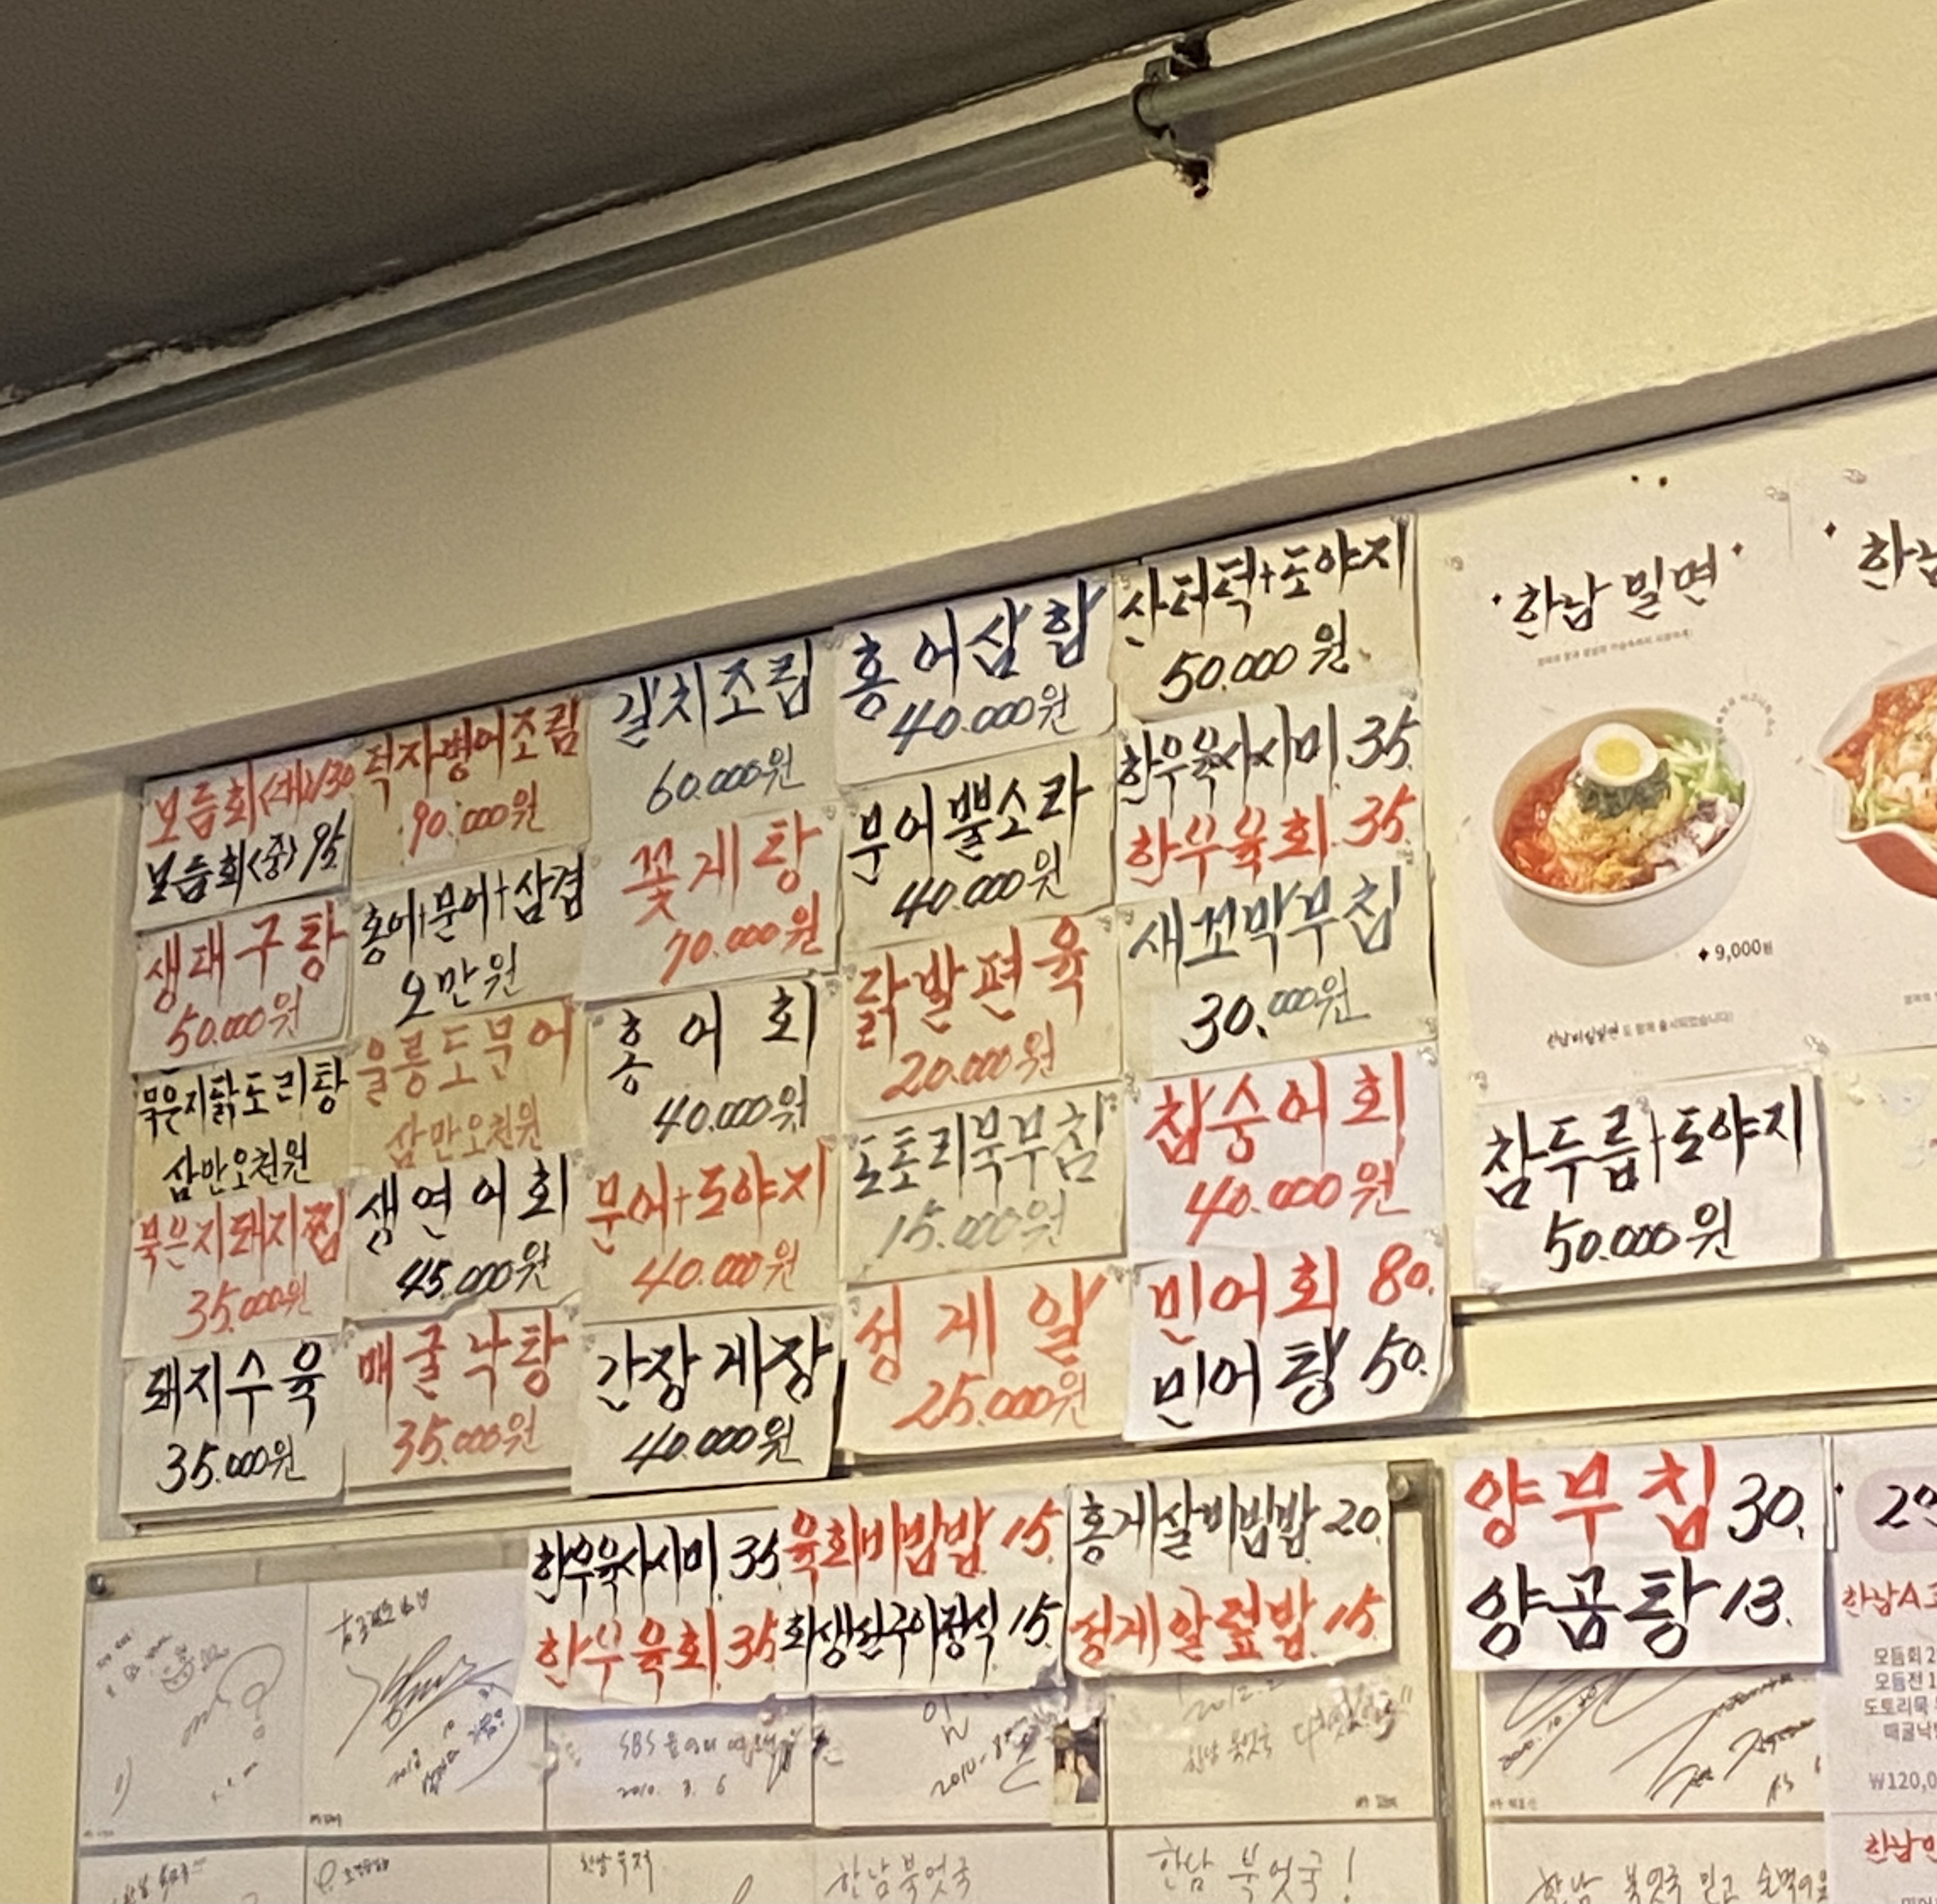 모듬회<대>130
모듬회<중>95
생태구탕
50.000원
묵은지닭도리탕
삼만오천원
묵은지돼지찜
35.000원
돼지수육
35.000원
덕자병어조림
90.000원
홍어+문어+삼겹
오만원
울릉도문어
삼만오천원
생연어회
45.000원
매굴낙탕
35.000원
갈치조림
60.000원
꽃게탕
70.000원
홍어회
40.000원
문어+도야지
40.000원
간장게장
40.000원
홍어삼합
40.000원
문어뿔소라
40.000원
닭발편육
20.000원
도토리묵무침
15.000원
성게알
25.000원
산더덕+도야지
50.000원
한우육사시미 35
한우육회 35.
새꼬막무침
30.000원
참숭어회
40.000원
민어회 80.
민어탕 50.
한남 밀면
9,000원
참두릅+도야지
50.000원
한우육사시미 35
한우육회 35
육회비빔밥 15.
화생선구이정식 15.
홍게살비빔밥 20.
성게알덮밥 15.
양무침 30.
양곰탕 13.
한남A코
모듬회 2
모듬전 1
도토리묵
매굴낙
₩120,0
SBS
2010. 3. 6
한남 북엇국
한남북엇국
한남 북엇국!
한남 북엇국